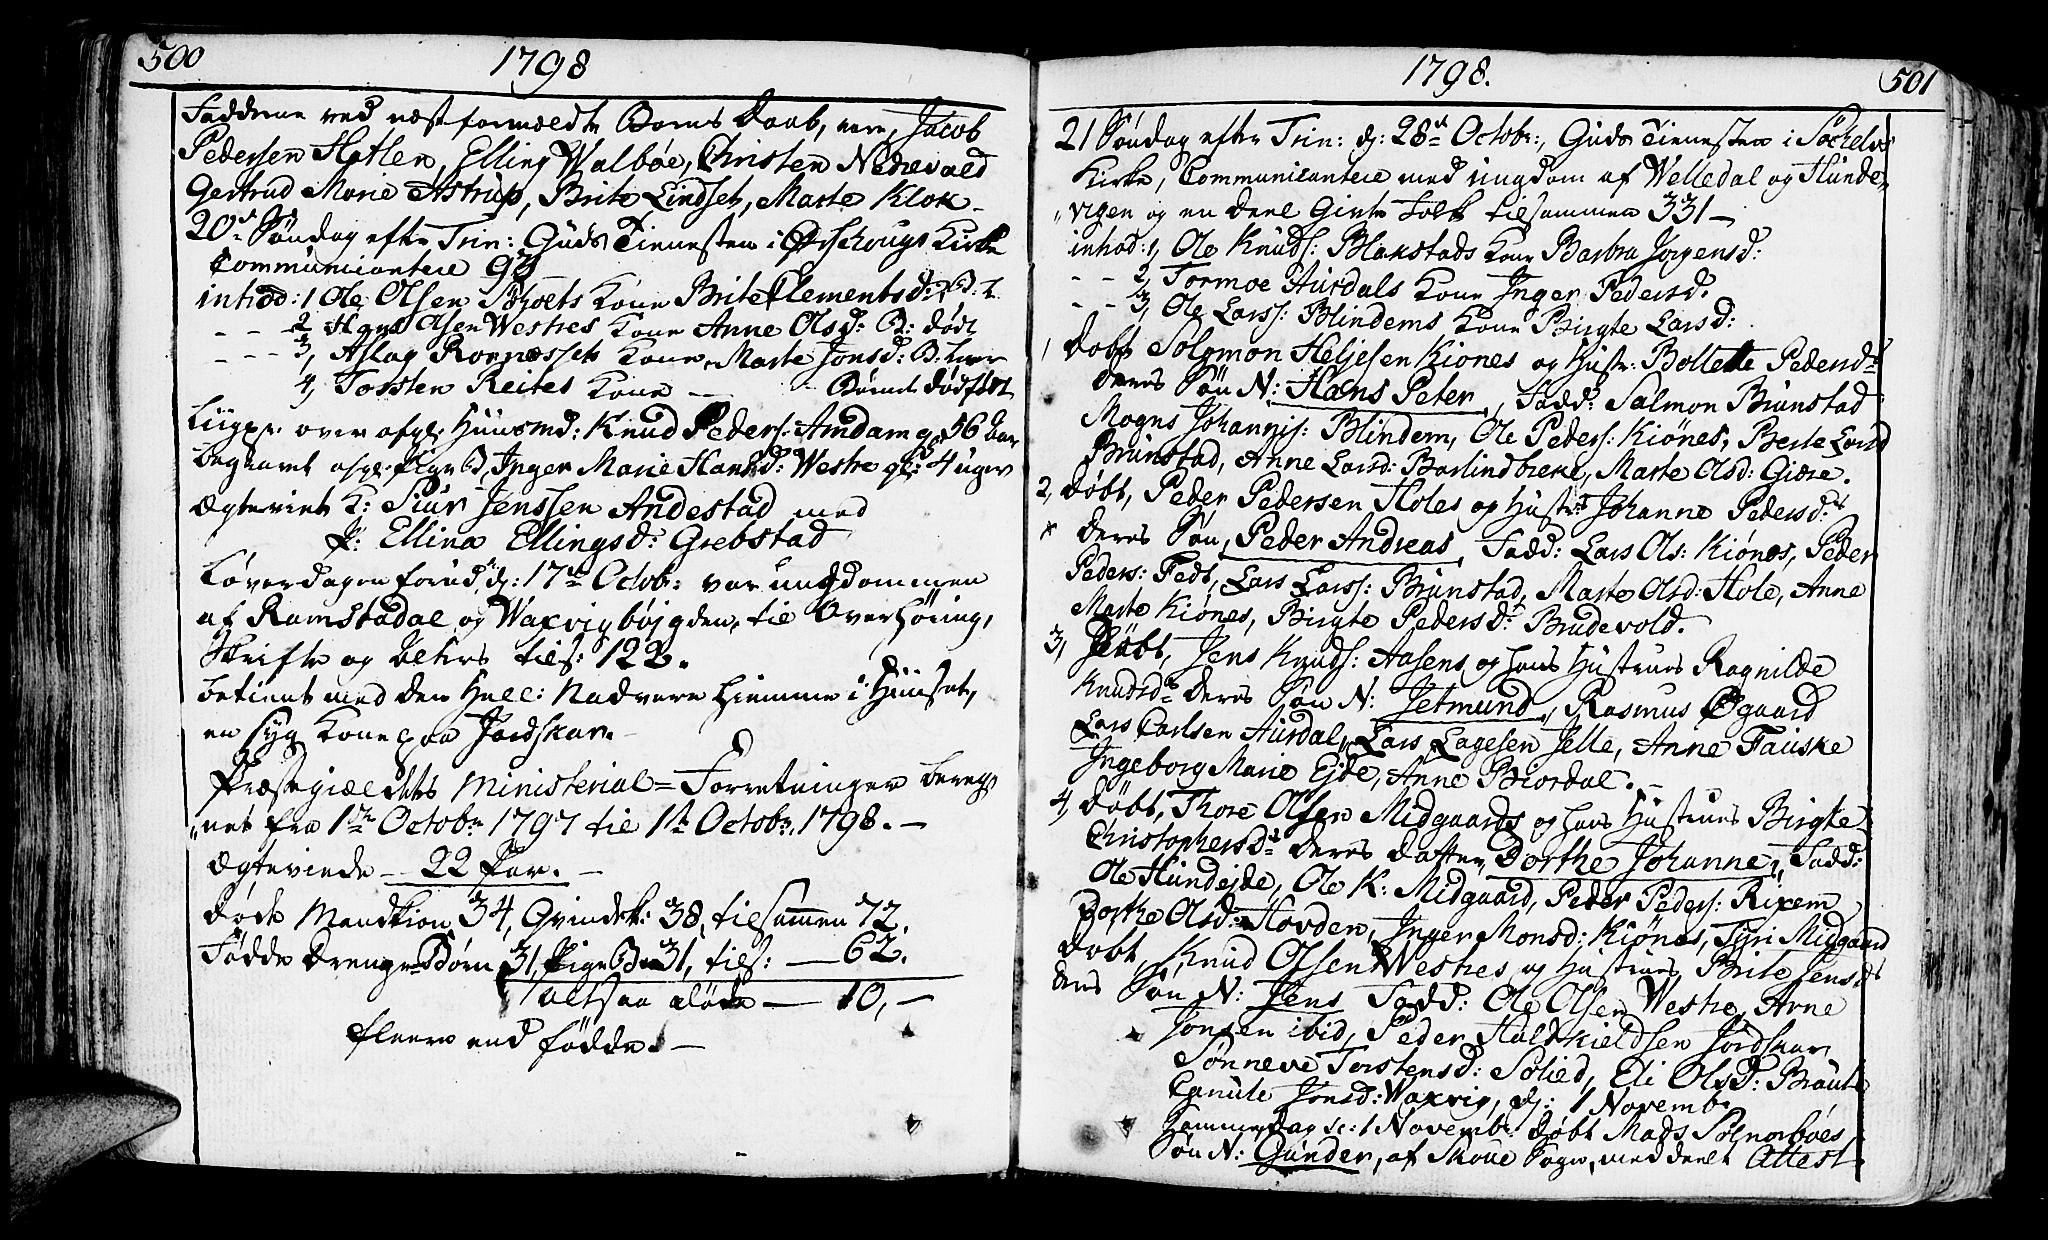 500
1798
Fadderne ved næst formældte Barns Daab, vare, Jacob
Pedersen Hatlen, Elling Walbøe, Christen Nedrevold
Gertrud Marie Astrup, Brite Lindset, Marte Klok
20de Søndag efter Trin: Guds Tienesten i Ørschougs Kirke
Communicantere 93
introd: 1 Ole Olsen Schoets Kone Brite Clementsd: B: l
- - - 2 Hans Olsen Westres Kone Anne Olsd: B: død
- - - 3, Aslag Rornæssets Kone, Marte Jonsd: B: lever
4, Torsten Reites Kone — Barnet dødfødt
Liigpr: over afgl: Huusmd: Knud Peders: Amdam gl: 56 Aar
begravet afgl: Pige B, Inger Marie Hansd: Westre gl: 4 uger
Ægteviet K: Siur Jenssen Andestad med
P: Ellina Ellingsd: Grebstad
Løverdagen forud, d: 17de Octob: var ungdommen
af Ramstadal og Waxvigbøjgden, til Overhøring,
Skrifte og tils: 122.
betient med den Hell: Nadvere hiemme i Huuset,
en syg Kone paa Jordskar. —
Præstegiældets Ministerial = Forretninger bereg
net fra 1ste Octobr 1797 til 1ste Octobr, 1798. —
Ægteviede — 22 Par. —
Døde Mandkion 34, Qvindek: 38, tilsammen 72.
Fødde Drenge Børn 31, Pige Børn 31, tils: — 62.
altsaa døde — 10, —
fleere end fødde. —
1798.
501
21 Søndag efter Trin: d: 28de Octob:, Guds Tienesten i Søchelvs
Kirke, Communicantere med ungdom af Welledal og Hunde
vigen og en deel Givte Folk tilsammen 331 —
introd: 1, Ole Knuds: Blakstads Kone Barbra Jørgensd:
- - 2, Tormoe Aursdals Kone Inger Pedersd.
- - 3, Ole Larss: Blindems Kone Birgte Larsd:
1 døbt Solomon Heljesen Kiønes og Hustr: Bollette Pedersd
deres Søn N: Hans Peter, Fadd: Salmon Brunstad
Mogns Johannis: Blindem, Ole Peders: Kiønes, Berte Larsd
Brunstad, Anne Larsd: Barlindbreke, Marte Olsd: Giære.
2, døbt, Peder Pedersen Holes og Hustr: Johanne Pedersd:
x deres Søn, Peder Andreas, Fadd: Lars Ols: Kiønes, Peder
Peders: Fedt, Lars Larss: Brunstad, Marte Olsd: Hole, Anne
Marte Kiønes, Birgte Pedersd: Brudevold.
3, døbt, Jens Knuds: Aasens og hans Hustrues Ragnilde
Knudsd deres Søn N: Jetmund, Rasmus Øgaard
Lars Carlsen Aursdal, Lars Lagesen Jelle, Anne Fauske
Ingeborg Marie Ejde, Anne Biordal. —
4, døbt, Thore Olsen Midgaards og hans Hustrues Birgte
Christophersd deres datter, Dorthe Johanne, Fadd:
Ole Hundejde, Ole K: Midgaard, Peder Peders: Rixem
Dorthe Olsd: Hovden, Inger Monsd: Kiønes, Tyri Midgaard
døbt, Knud Olsen Westres og Hustrues Brite Jensds
deres Søn N: Jens Fadd: Ole Olsen Westre, Arne
Jonsen ibid, Peder Haldkieldsen Jordskar,
Sønneve Torstensd: Solied, Eli Olsd: Braute
Gunule Jonsd: Waxvig, d: 1 Novembr
dag d: 1 Novembr: døbt Mads Solnørbøes,
Søn N: Gunder, af Skoue Sogn, meddeelt Attest